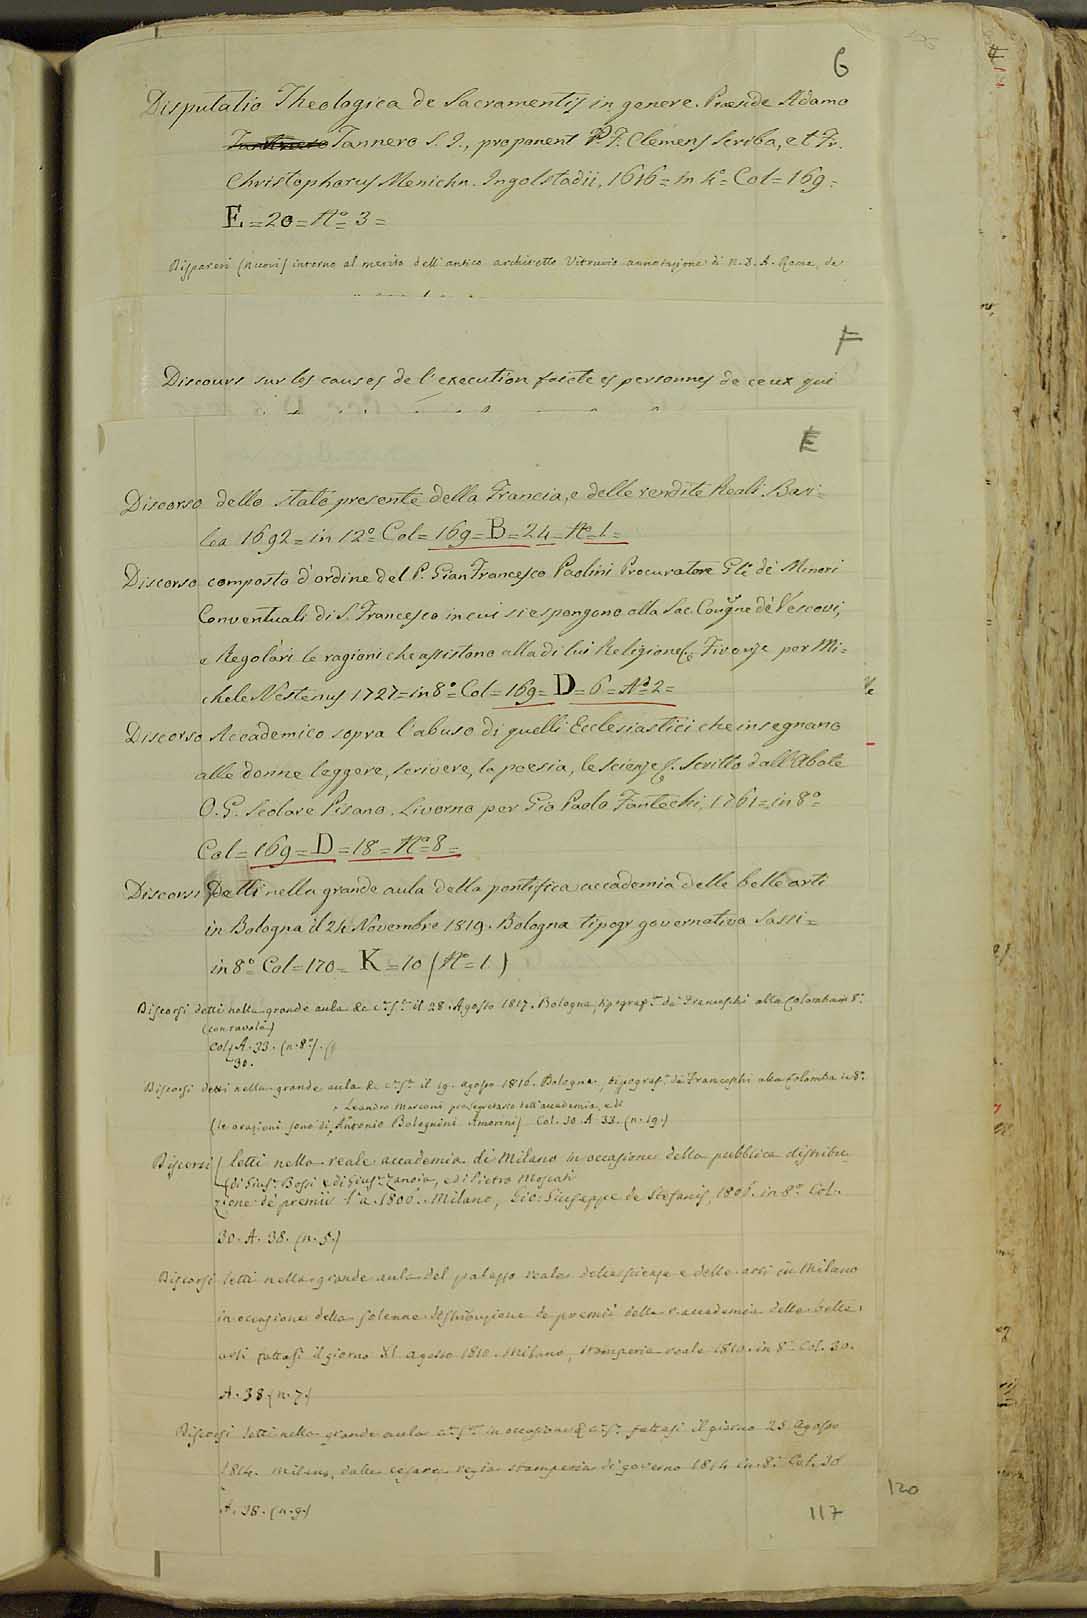 6
Disputatio Theologica de Sacramentis in genere. Præside Adamo
Tannero S. J., proponent P. F. Clemens Scriba, et Fr.
Christophorus Menichn. Ingolstadii, 1616= in 4º= Col= 169=
E=20=Nº 3=
Dispareri (nuovi) intorno al merito dell'antico architetto Vitruvio annotazione di N. D. A. Roma, de
F
Discours sur les causes de l'execution faicte es personnes de ceux qui
E
Discorso dello stato presente della Francia, e delle rendite Reali. Basi=
lea 1692= in 12º= Col= 169= B=24=Nº 1=
Discorso composto d'ordine del P. Gian Francesco Paolini Procuratore Gle de' Minori
Conventuali di S. Francesco in cui si espongono alla Sac. Congne de' Vescovi,
e Regolari le ragioni che assistono alla di lui Religione &c. Firenze per Mi=
chele Nestenus 1727= in 8º= Col= 169= D=6=Nº 2=
Discorso Accademico sopra l'abuso di quelli Ecclesiastici che insegnano
alle donne leggere, scrivere, la poesia, le scienze &c. Scritto dall'Abate
O. G. Scolare Pisano. Livorno per Gio Paolo Fantechi, 1761= in 8º=
Col= 169= D=18=Nº 8=
Discorsi Detti nella grande aula della pontificia accademia delle belle arti
in Bologna il 24 Novembre 1819. Bologna tipogr governativa Sassi=
in 8º Col= 170= K=10 (Nº= 1)
Discorsi detti nella grande aula &c. il 28. Agosto 1817. Bologna, tipograf. de' Franceschi alla Colomba in 8º.
(con tavola)
Col. A. 33. (n. 8º)
30.
Discorsi detti nella grande aula &c. il 19. agosto 1816. Bologna, tipograf. de' Franceschi alla Colomba in 8º.
Leandro Marconi prosegretario dell'accademia, e di
(le orazioni sono di Antonio Bolognini Amorini) Col. 30. A. 33. (n. 19.)
Discorsi letti nella reale accademia di Milano in occasione della pubblica distribu-
(di Gius. Bossi e di Gius. Zanoja, e di Pietro Moscati
zione de' premii l'a. 1806. Milano, Gio: Giuseppe de Stefanis, 1806. in 8º. Col.
30. A. 38. (n. 5.)
Discorsi letti nella grande aula del palazzo reale delle scienze e delle arti in Milano
in occasione della solenne distribuzione de' premii della r. accademia delle belle
arti fattasi il giorno XI agosto 1810. Milano, stamperia reale 1810. in 8º. Col. 30.
A. 38. (n. 7.)
Discorsi letti nella grande aula in occasione &c. fattasi il giorno 25 Agosto
1814. Milano, dalla cesarea regia stamperia di governo 1814 in 8º. Col. 30
A. 38. (n. 9.)
120
117